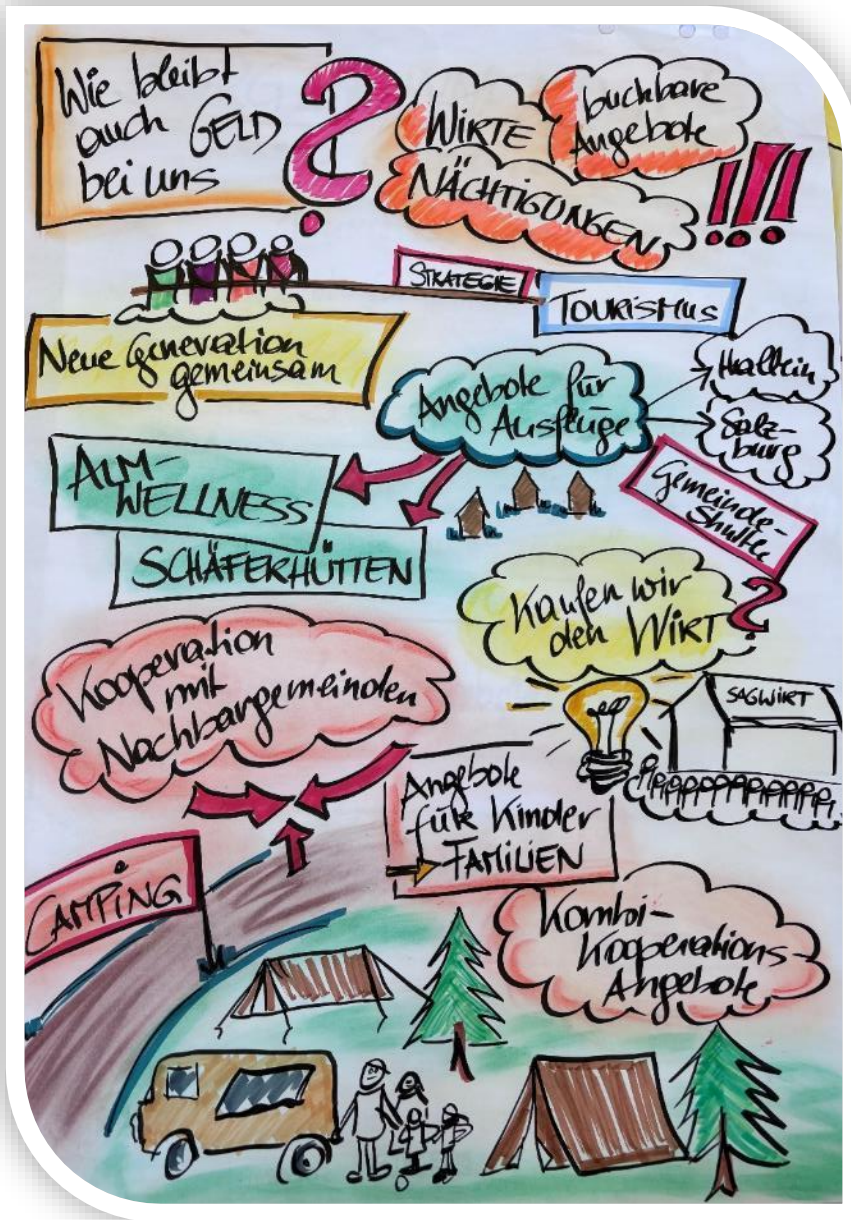 Wie bleibt
auch GELD
bei uns
?
WIRTE
buchbare
Angebote
NÄCHTIGUNGEN
!!!
STRATEGIE
TOURISMUS
Neue Generation
gemeinsam
Angebote für
Ausflüge
Hallein
Salz-
burg
ALM-
WELLNESS
SCHÄFERHÜTTEN
Gemeinde-
Kaufen wir
den WIRT
?
Kooperation
mit
Nachbargemeinden
SAGWIRT
Angebote
für Kinder
FAMILIEN
CAMPING
Kombi-
Kooperations-
Angebote